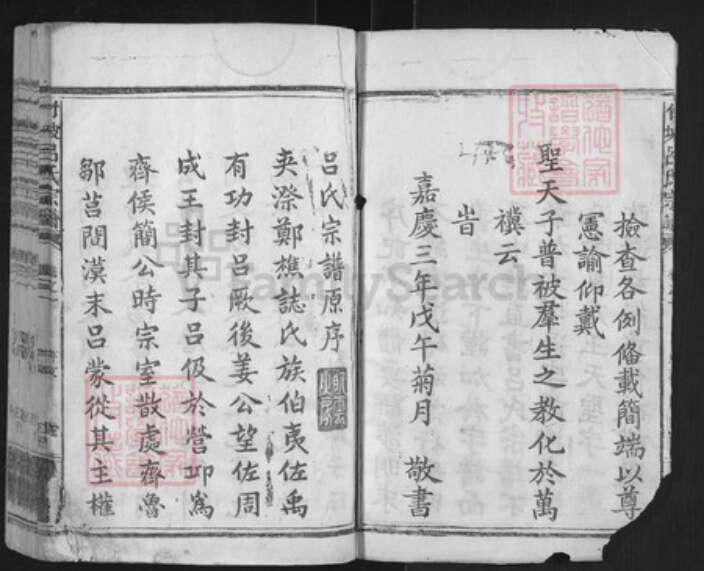 檢查各例俻載簡端以尊
憲諭仰戴
聖天子普被羣生之教化於萬
禩云
旹
嘉慶三年戊午菊月　敬書
呂氏宗譜原序
夾漈鄭樵誌氏族伯夷佐禹
有功封呂厥後姜公望佐周
成王封其子呂伋於營邱爲
齊侯簡公時宗室散處齊魯
鄒莒間漢末呂蒙從其主權
FamilySearch